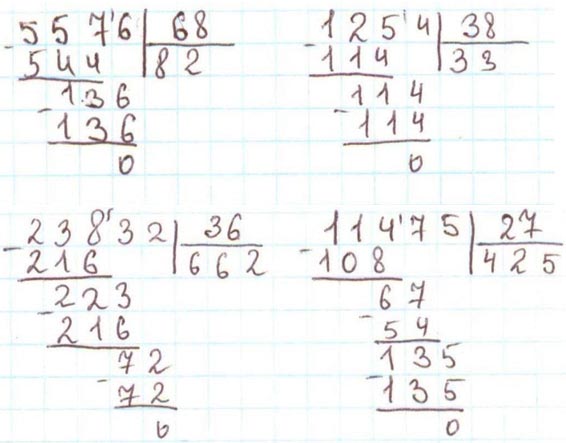 5576 | 68
- 544 | 82
136
- 136
0
1254 | 38
- 114 | 33
114
- 114
0
23832 | 36
- 216 | 662
223
- 216
72
- 72
0
11475 | 27
- 108 | 425
67
- 54
135
- 135
0